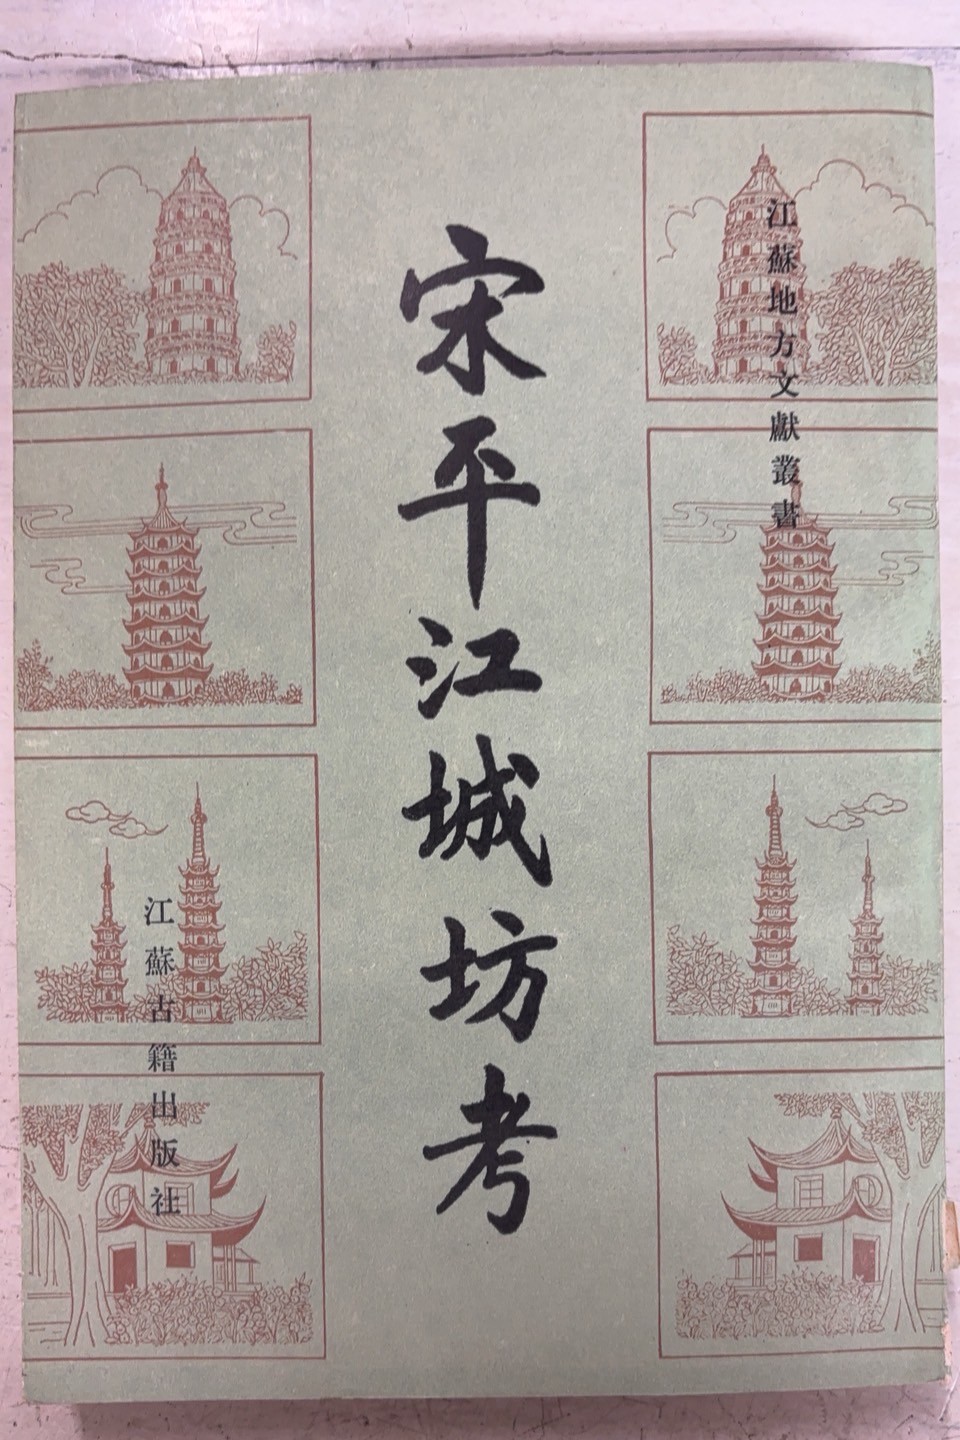 江蘇地方文獻叢書
宋平江城坊考
江蘇古籍出版社